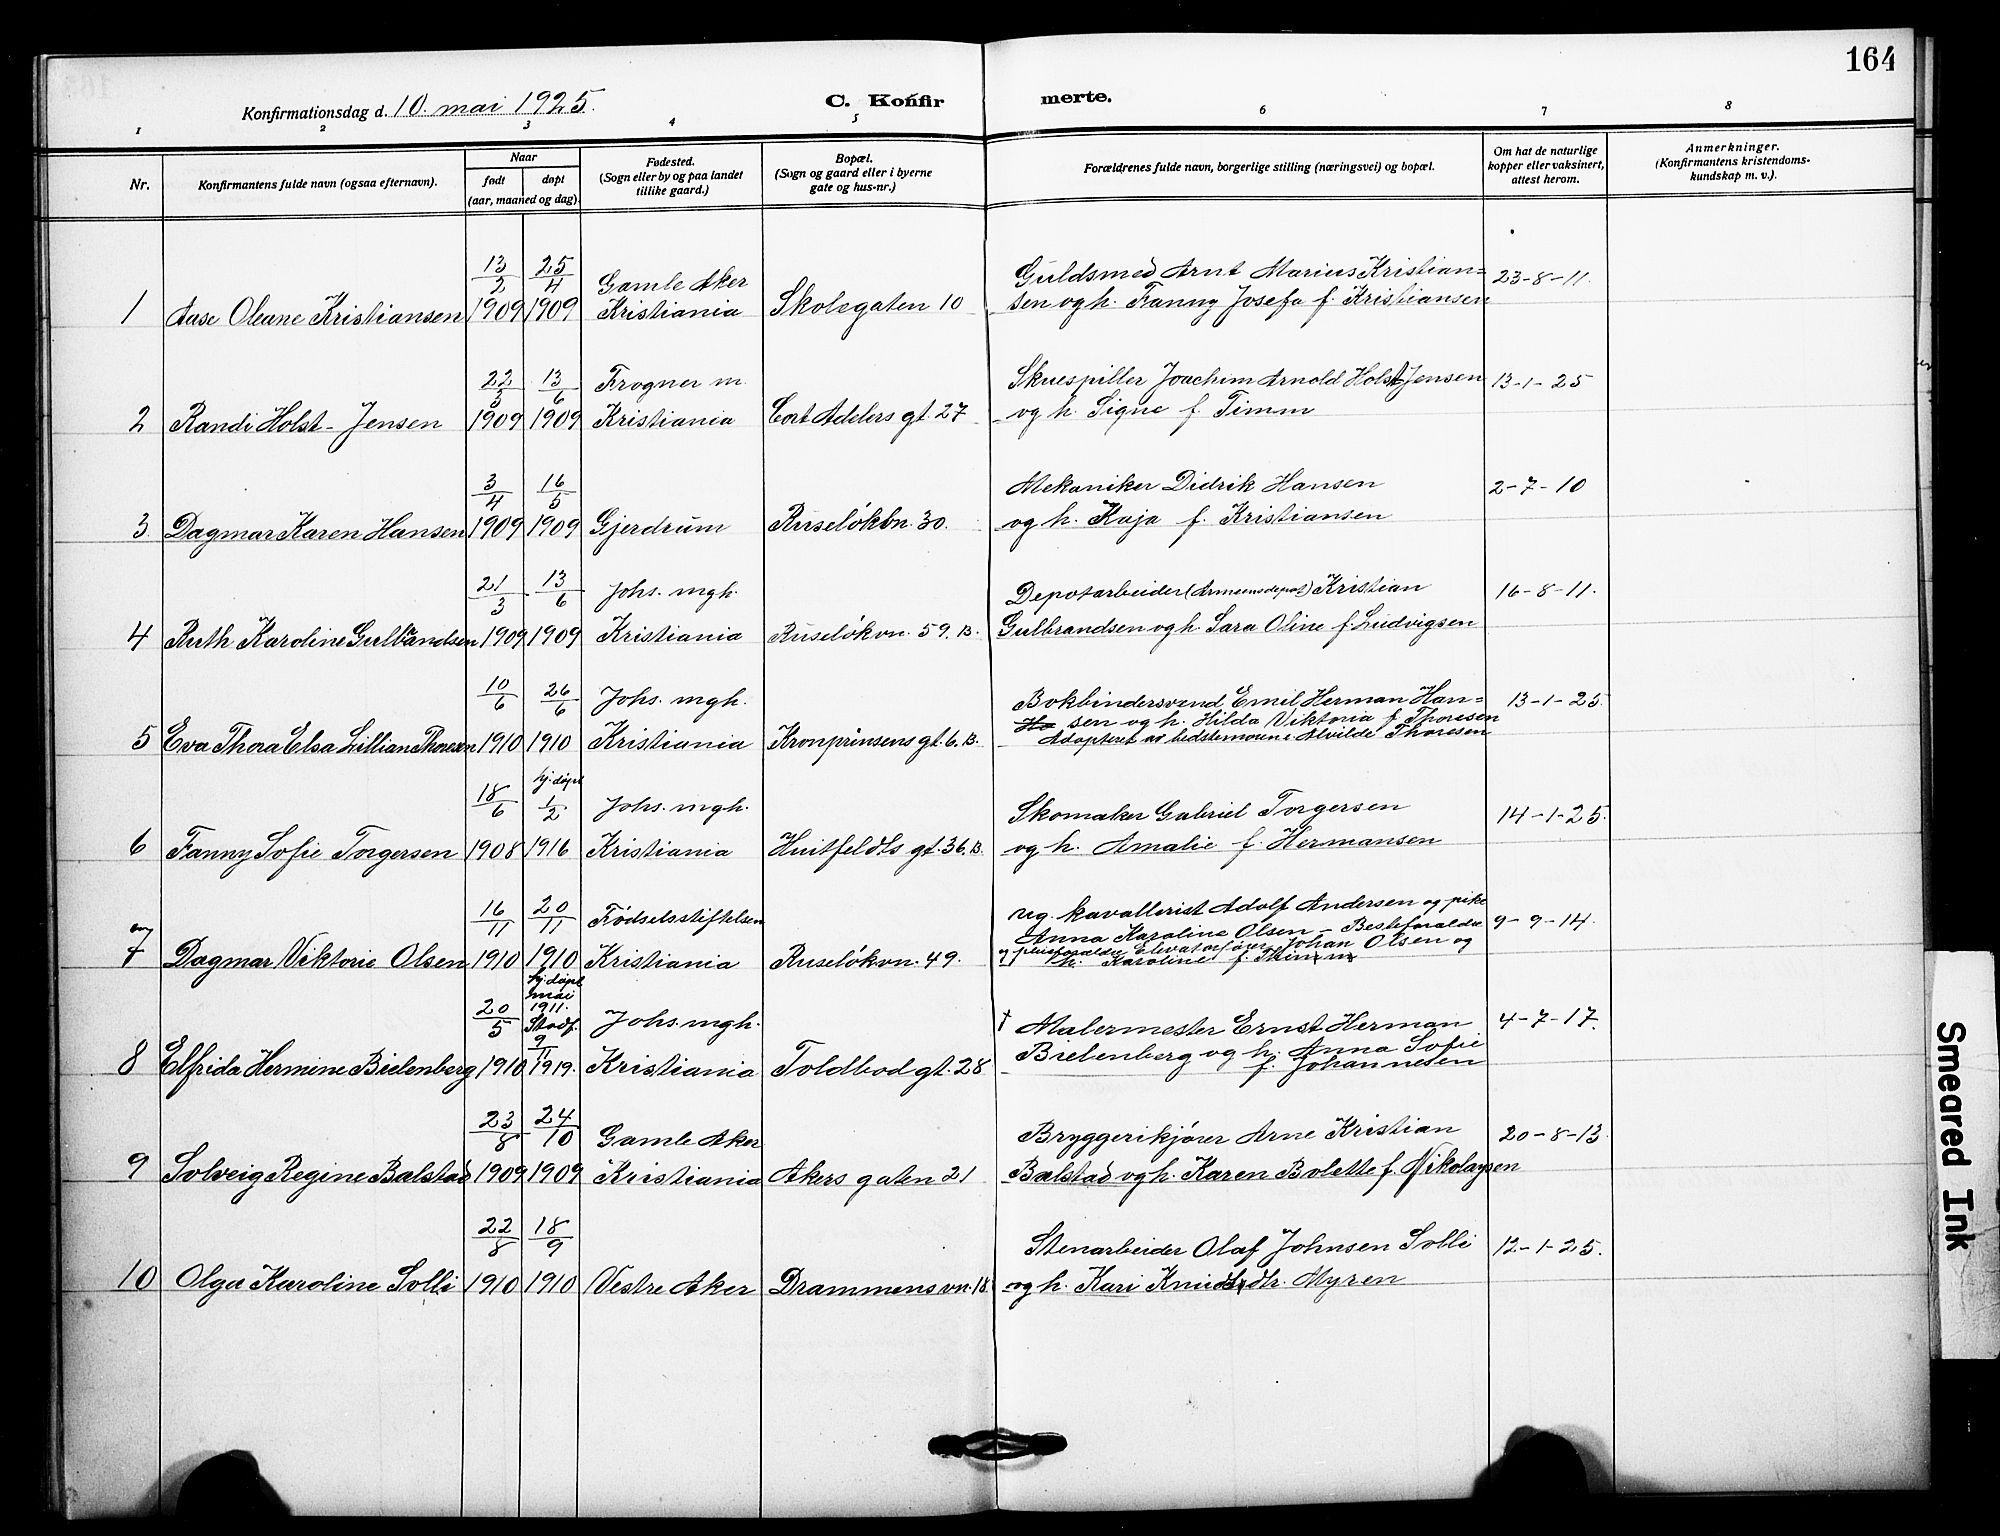 164
Konfirmationsdag d. 10. mai 1925.
C. Konfir merte.
1 2 3 4 5 6 7 8
Nr.
Konfirmantens fulde navn (ogsaa efternavn).
Naar
født døpt
(aar, maaned og dag).
Fødested.
(Sogn eller by og paa landet
tillike gaard.)
Bopæl.
(Sogn og gaard eller i byerne
gate og hus-nr.)
Forældrenes fulde navn, borgerlige stilling (næringsvei) og bopæl.
Om hat de naturlige
kopper eller vaksinert,
attest herom.
Anmerkninger.
(Konfirmantens kristendoms-
kundskap m. v.).
13/2 25/4 Gamle Aker Guldsmed Arnt Marius Kristian= 23-8-11.
1 Aase Oleane Kristiansen 1909 1909 Kristiania Skolegaten 10 sen og h. Fanny Josefa f. Kristiansen
22/3 13/6 Frogner m. Skuespiller Joachim Arnold Holst-Jensen 13-1-25
2 Randi Holst-Jensen 1909 1909 Kristiania Cort Adelers gt. 27 og h. Signe f. Timm
3/4 16/5 Mekaniker Didrik Hansen 2-7-10
3. Dagmar Karen Hansen 1909 1909 Gjerdrum Ruseløkbn. 30. og h. Kaja f. Kristiansen
21/3 13/6 Johs. mgh. Depotarbeider (Armeensdepot) Kristian 16-8-11.
4 Ruth Karoline Gulbrandsen 1909 1909 Kristiania Ruseløkvn. 59. B. Gulbrandsen og h. Sara Oline f. Ludvigsen
10/6 26/6 Johs. mgh. Bokbindersvend Emil Herman Han= 13-1-25.
sen og h. Hilda Viktoria f. Thoresen
5 Eva Thora Elsa Lillian Thoresen 1910 1910 Kristiania Kronprinsens gt. 6. B. Adopteret av bedstemoren: Alvilde Thoresen
hj. døpt
18/6 1/2 Johs. mgh. Skomaker Gabriel Torgersen 14-1-25.
6 Fanny Sofie Torgersen 1908 1916 Kristiania Huitfeldts gt. 36. B. og h. Amalie f. Hermansen
16/11 20/11 Fødselsstiftelsen ug. kavallerist Adolf Andersen og pike 9-9-14.
Anna Karoline Olsen - Besteforældre
og pleieforældre Elevatorfører Johan Olsen og
7 Dagmar Viktorie Olsen 1910 1910 Kristiania Ruseløkvn. 49. h. Karoline f.
hj. døpt
mai
1911.
Stadf.
20/5 9/1 Johs. mgh. † Malermester Ernst Herman 4-7-17.
Bielenberg og h. Anna Sofie
8 Elfrida Hermine Bielenberg 1910 1919. Kristiania Toldbod gt. 28 f. Johannesen
23/8 24/10 Gamle Aker Bryggerikjører Arne Kristian 20-8-13.
9 Solveig Regine Bælstad 1909 1909 Kristiania Akers gaten 21 Bælstad og h. Karen Bolette f. Nikolaysen
22/8 18/9 Stenarbeider Olaf Johnsen Solli 12-1-25.
10 Olga Karoline Solli 1910 1910 Vestre Aker Drammensvn. 18. og h. Kari Knudsdtr. Myren
Smeared Ink